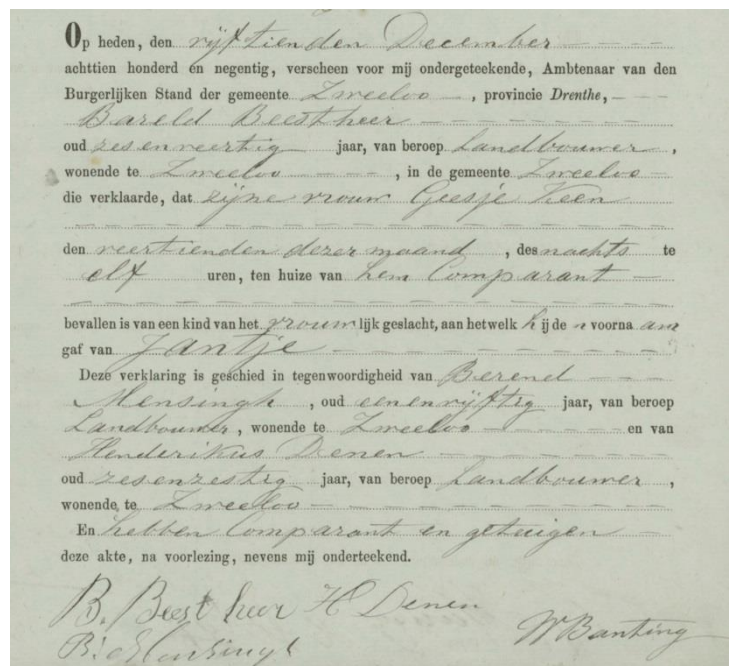 Op heden, den vijftienden December
achttien honderd en negentig, verscheen voor mij ondergeteekende, Ambtenaar van den
Burgerlijken Stand der gemeente Zweeloo, provincie Drenthe,
Bareld Beestheer
oud zesenveertig jaar, van beroep Landbouwer,
wonende te Zweeloo, in de gemeente Zweeloo
die verklaarde, dat zijne vrouw Geesje Keen
den veertienden dezer maand, des nachts te
elf uren, ten huize van hem Comparant
bevallen is van een kind van het vrouwlijk geslacht, aan hetwelk hij de n voornaam
gaf van Jantje
Deze verklaring is geschied in tegenwoordigheid van Berend
Mensingh, oud eenenvijftig jaar, van beroep
Landbouwer, wonende te Zweeloo en van
Henderikus Denen
oud zesenzestig jaar, van beroep Landbouwer,
wonende te Zweeloo
En hebben Comparant en getuigen
deze akte, na voorlezing, nevens mij onderteekend.
B. Beestheer H Denen
W Banting
B. Mensingh